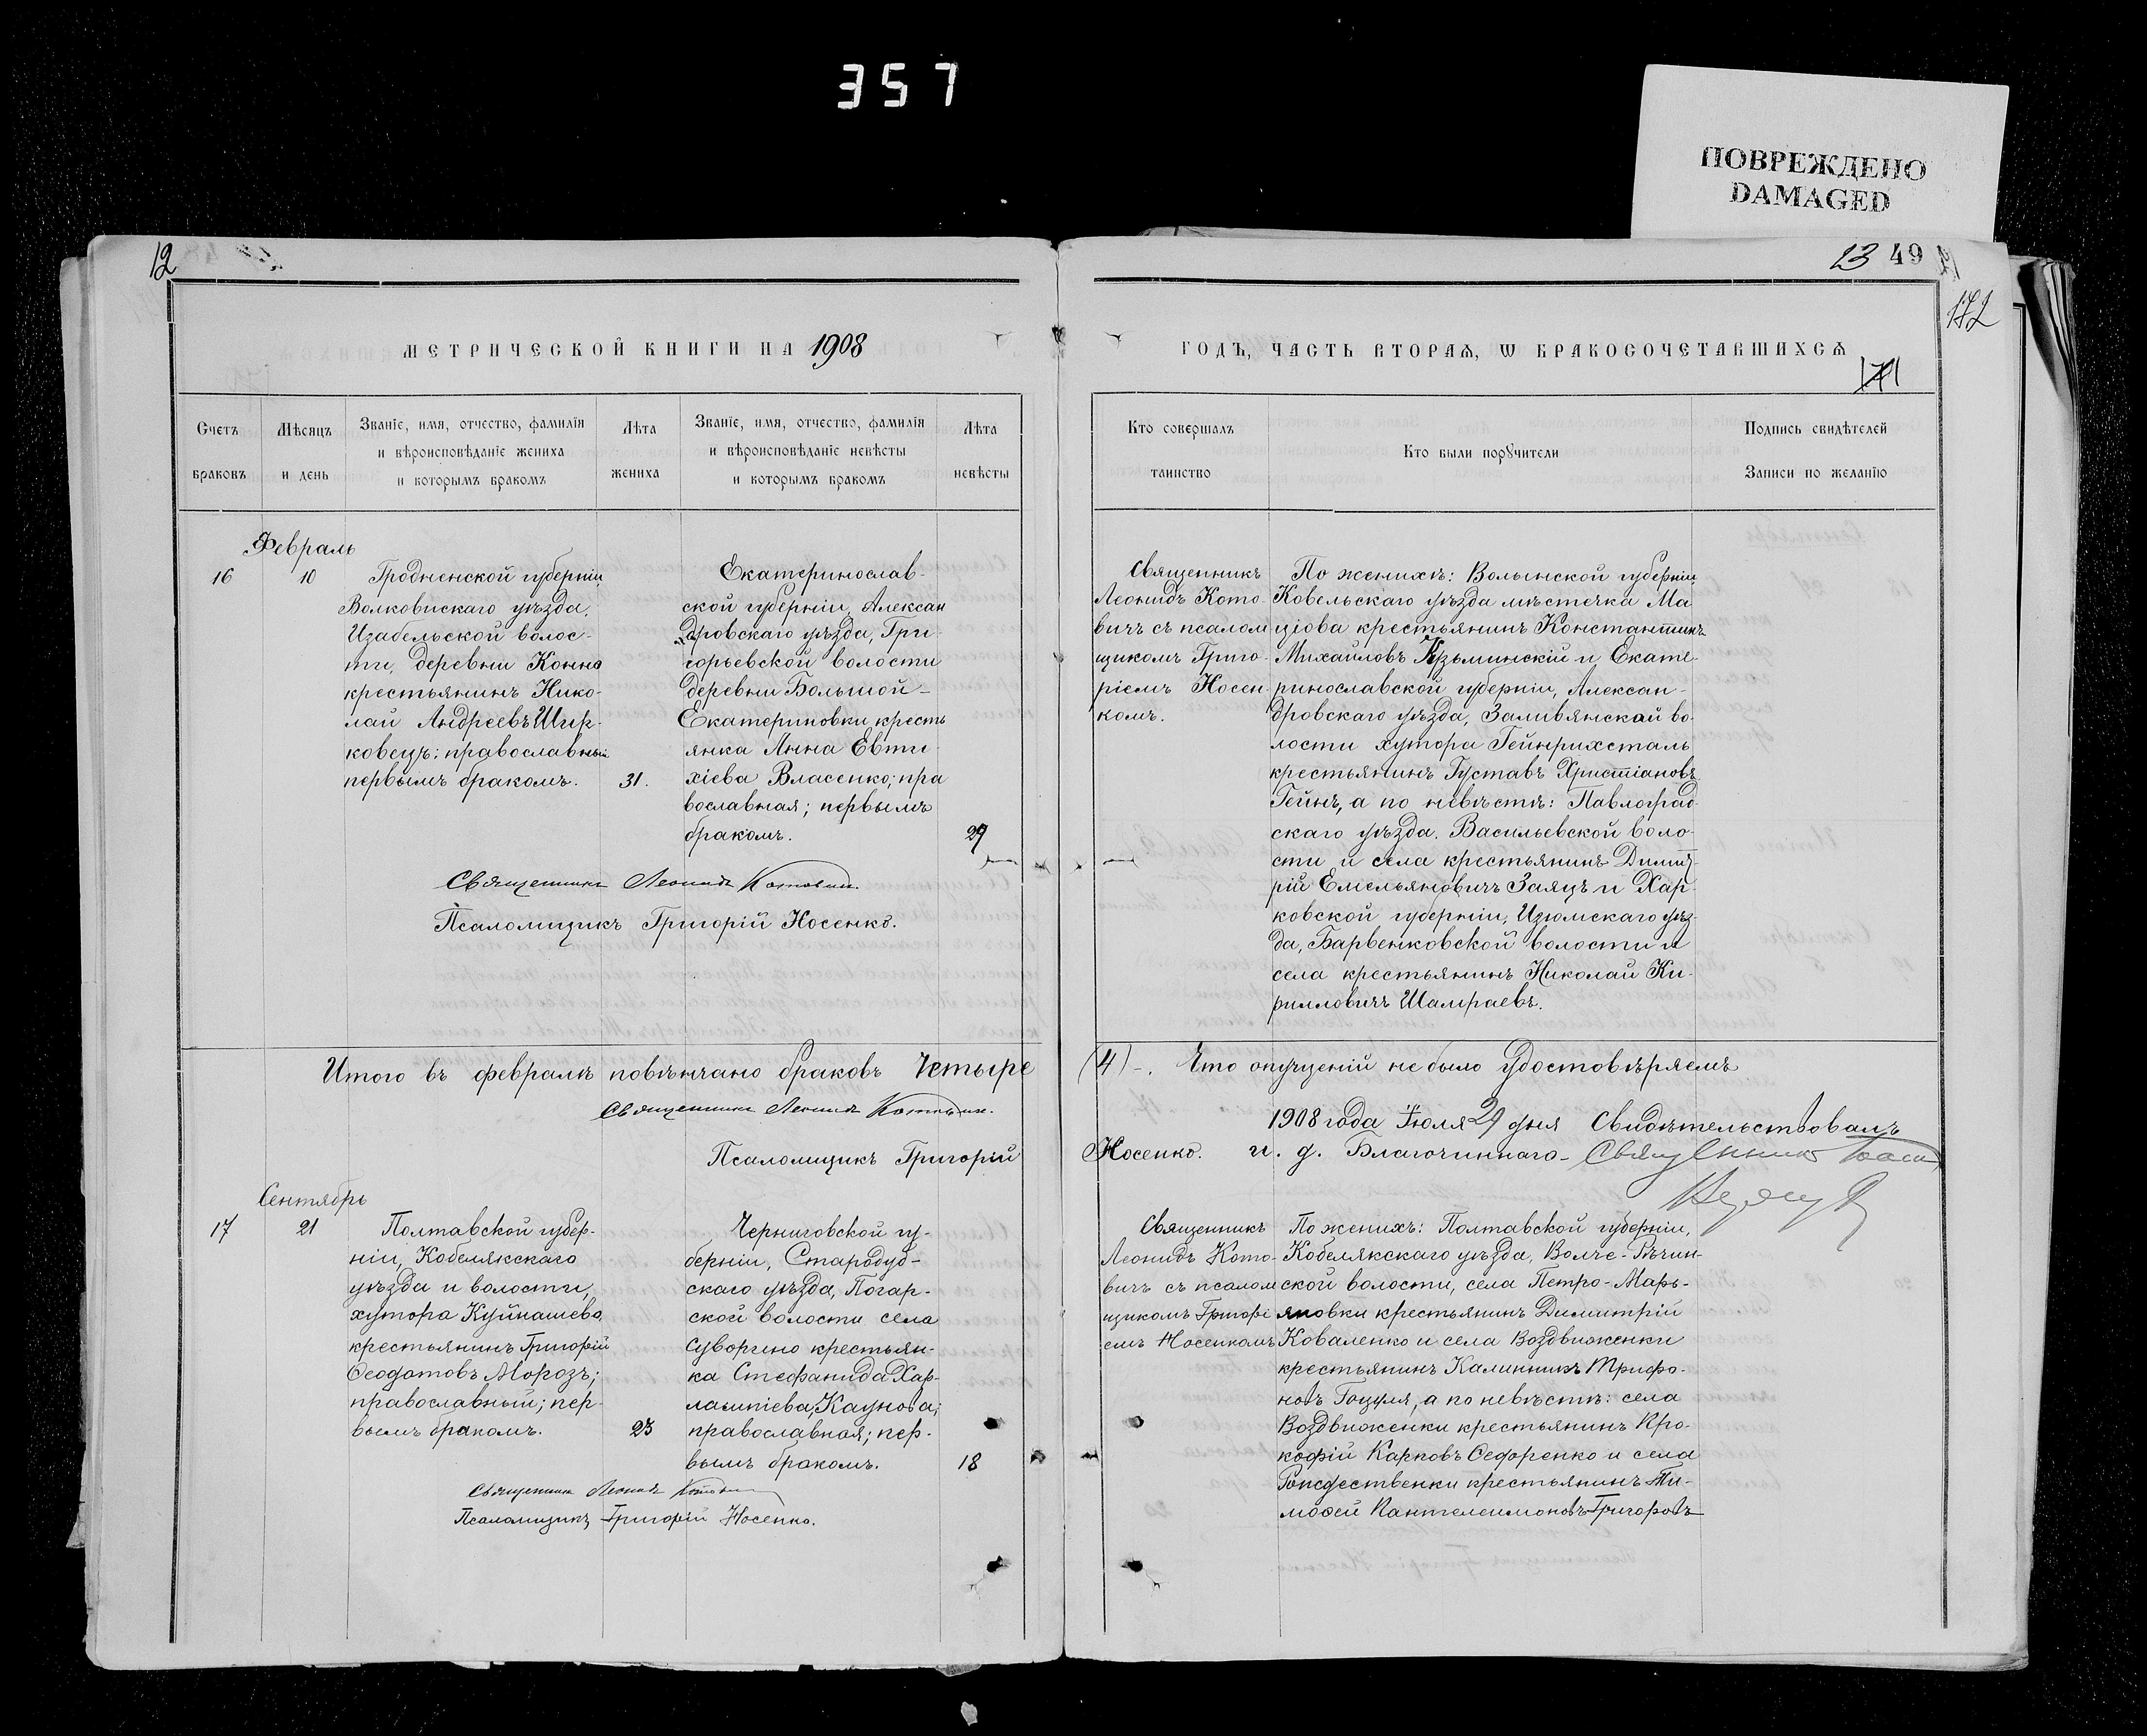 357
ПОВРЕЖДЕНО
DAMAGED
12
МЕТРИЧЕСКОЙ КНИГИ НА 1908
Счетъ
браковъ
Мѣсяцъ
и день
Званіе, имя, отчество, фамилія
и вѣроисповѣданіе жениха
и которымъ бракомъ
Лѣта
жениха
Званіе, имя, отчество, фамилія
и вѣроисповѣданіе невѣсты
и которымъ бракомъ
Лѣта
невѣсты
Февраль
16
10
Гродненской губерніи
Волковискаго уѣзда,
Изабельской волос-
ти, деревни Конна
крестьянинъ Нико-
лай Андреевъ
ковецъ: православный
первымъ бракомъ.
31.
Екатеринослав-
ской губерніи, Алексан
дровскаго уѣзда, Гри-
горьевской волости
деревни Большой-
Екатериновки кресть
янка Анна Евти-
хіева Власенко; пра
вославная; первымъ
бракомъ.
29
Священникъ Леонидъ Котовичъ.
Псаломщикъ Григорій Носенко.
Итого въ февралѣ повѣнчано браковъ Четыре
Священникъ Леонидъ Котовичъ.
Псаломщикъ Григорій
Сентябрь
17
21
Полтавской губер-
ніи, Кобелякскаго
уѣзда и волости,
хутора Куйнашева
крестьянинъ Григорій
Ѳеодотовъ Морозъ;
православный; пер-
вымъ бракомъ.
23
Черниговской гу-
берніи, Стародуб-
скаго уѣзда, Погар-
ской волости села
Суворгино крестьян-
ка Стефанида Хар-
лампіева, Каунова;
православная; пер-
вымъ бракомъ.
18
Священникъ Леонидъ Котовичъ
Псаломщикъ Григорій Носенко.
13 49
172
171
ГОДЪ, ЧАСТЬ ВТОРАѦ, Ѡ БРАКОСОЧЕТАВШИХСѦ
Кто совершалъ
таинство
Кто были порꙋчители
Подпись свидѣтелей
Записи по желанію
Священникъ
Леонидъ Кото-
вичъ съ псалом
щикомъ Григо-
ріемъ Носен-
комъ.
По женихѣ: Волынской губерніи
Ковельскаго уѣзда мѣстечка Ма
ціова крестьянинъ Константинъ
Михайловъ Кузьминскій и Екате-
ринославской губерніи, Алексан-
дровскаго уѣзда, Заливянской во-
лости хутора Гейнрихсталь
крестьянинъ Густавъ Христіановъ
Гейнъ, а по невѣстѣ: Павлоград-
скаго уѣзда. Васильевской воло-
сти и села крестьянинъ Димит-
рій Емельяновичъ Заяцъ и Хар-
ковской губерніи, Изюмскаго уѣз-
да, Барвенковской волости и
села крестьянинъ Николай Ки-
рилловичъ Шамраевъ.
(4) -. Что опущеній не было удостовѣряемъ
1908 года Іюля 21 дня Свидѣтельствовалъ
Носенко. и. д. Благочиннаго- Священникъ
Священникъ
Леонидъ Кото-
вичъ съ псалом
щикомъ Григорі
емъ Носенкомъ
По женихѣ: Полтавской губерніи,
Кобелякскаго уѣзда, Волче-Рѣчин-
ской волости, села Петро-Марь-
яновки крестьянинъ Димитрій
Коваленко и села Воздвиженки
крестьянинъ Калинникъ Трифо-
новъ Гоцуля, а по невѣстѣ: села
Воздвиженки крестьянинъ Про-
кофій Карповъ Ѳедоренко и села
Рождественки крестьянинъ Ти-
моѳей Пантелеимоновъ Григоровъ